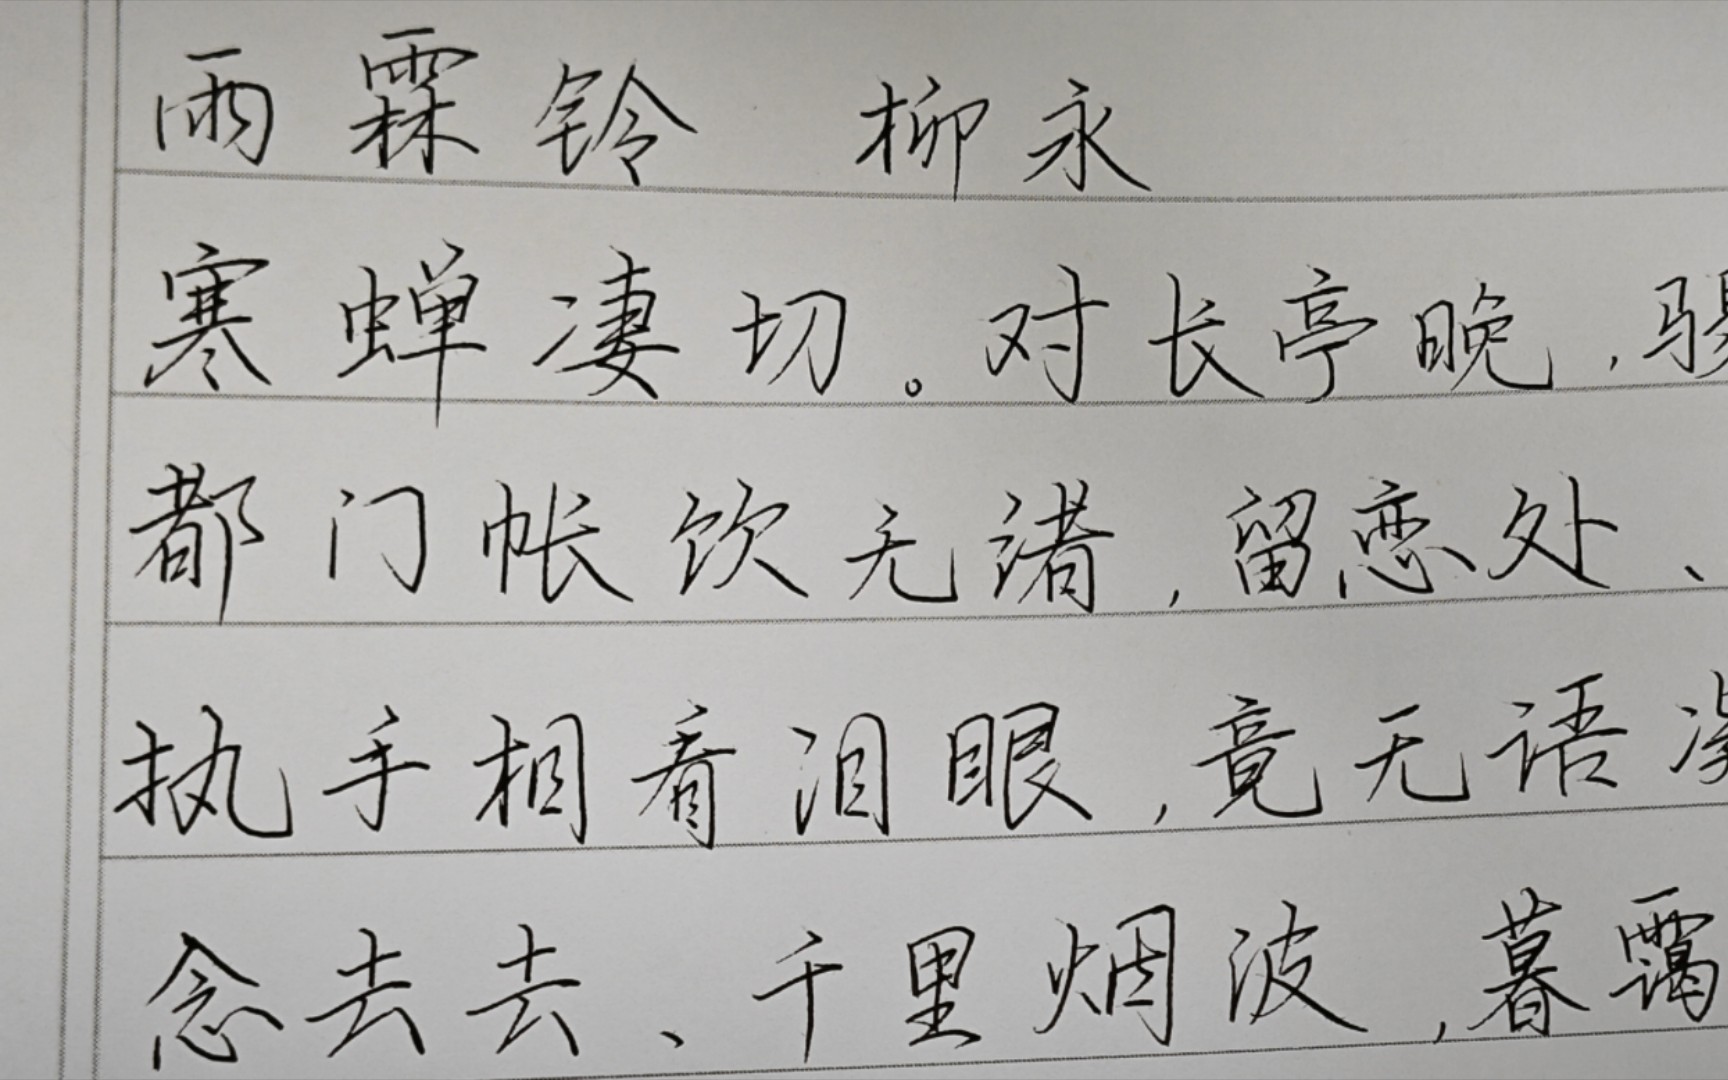 雨霖铃 柳永
寒蝉凄切。对长亭晚，
都门帐饮无绪，留恋处、
执手相看泪眼，竟无语
念去去、千里烟波，暮霭